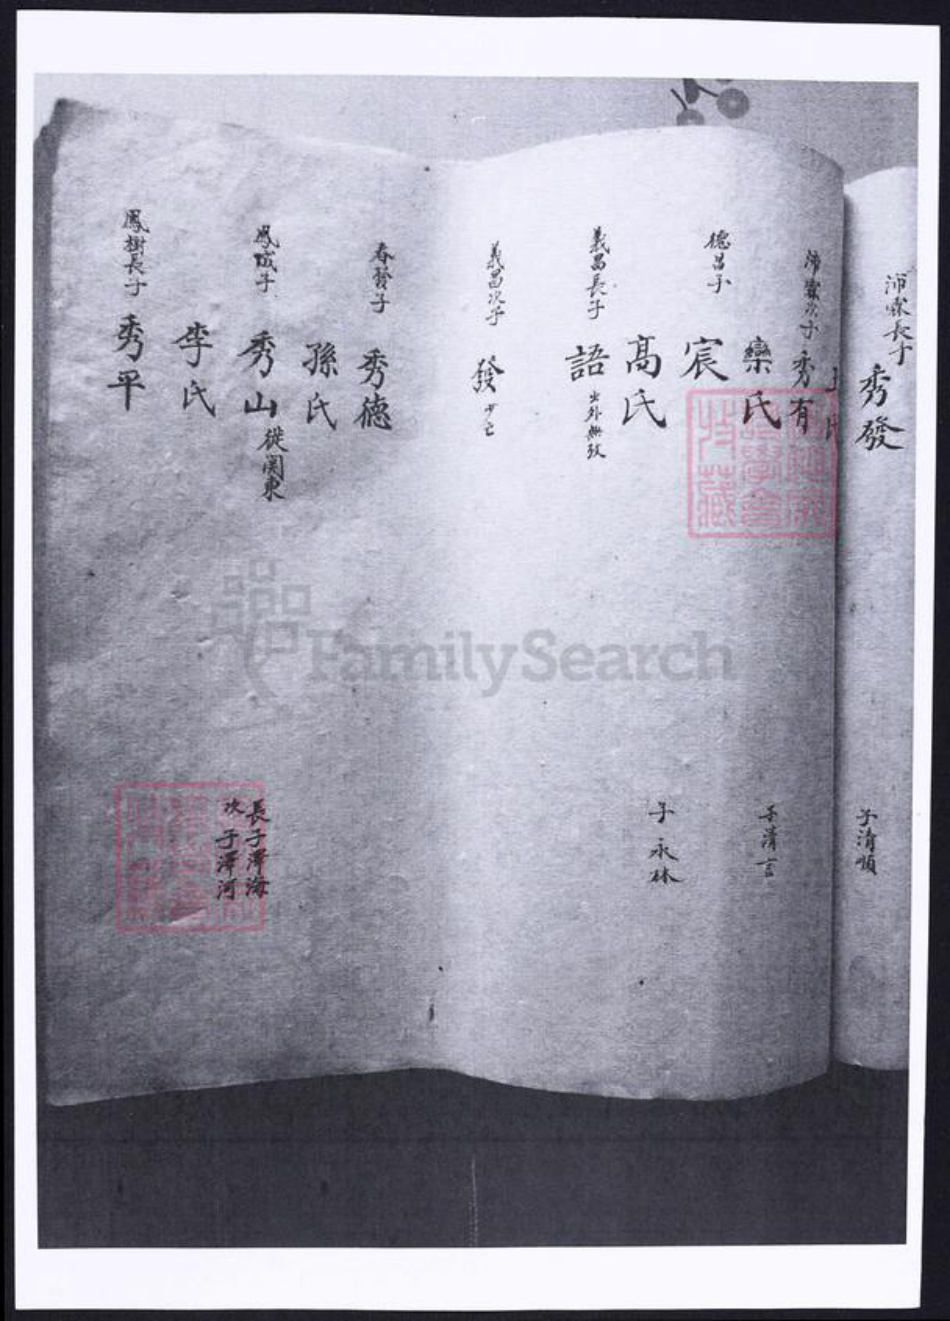 沛霖長子
秀發
子清順
沛霖次子
秀有
子清言
欒氏
德昌子
宸
高氏
子永林
義昌長子
語
出外無考
義昌次子
發
少亡
春發子
秀德
孫氏
鳳城子
秀山
從関東
長子澤海
次子澤河
李氏
鳳樹長子
秀平
FamilySearch